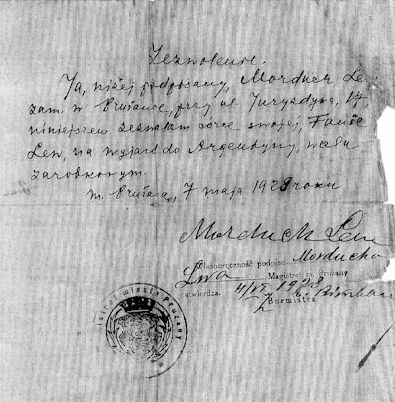 Zezwolenie.
Ja, niżej podpisany, Morduch Lew
zam. w Prużanie, przy ul. Jurysdyka, 17,
niniejszem zezwalam córce swojej, Fanie
Lew, na wyjazd do Argentyny, w celu
zarobkowym.
m. Prużana, 7 maja 1928 roku
Morduch Lew
Własnoręczność podpisu Morducha
Lwa Magistrat m. Prużany
stwierdza. 1928
Burmistrz
miasta Prużany